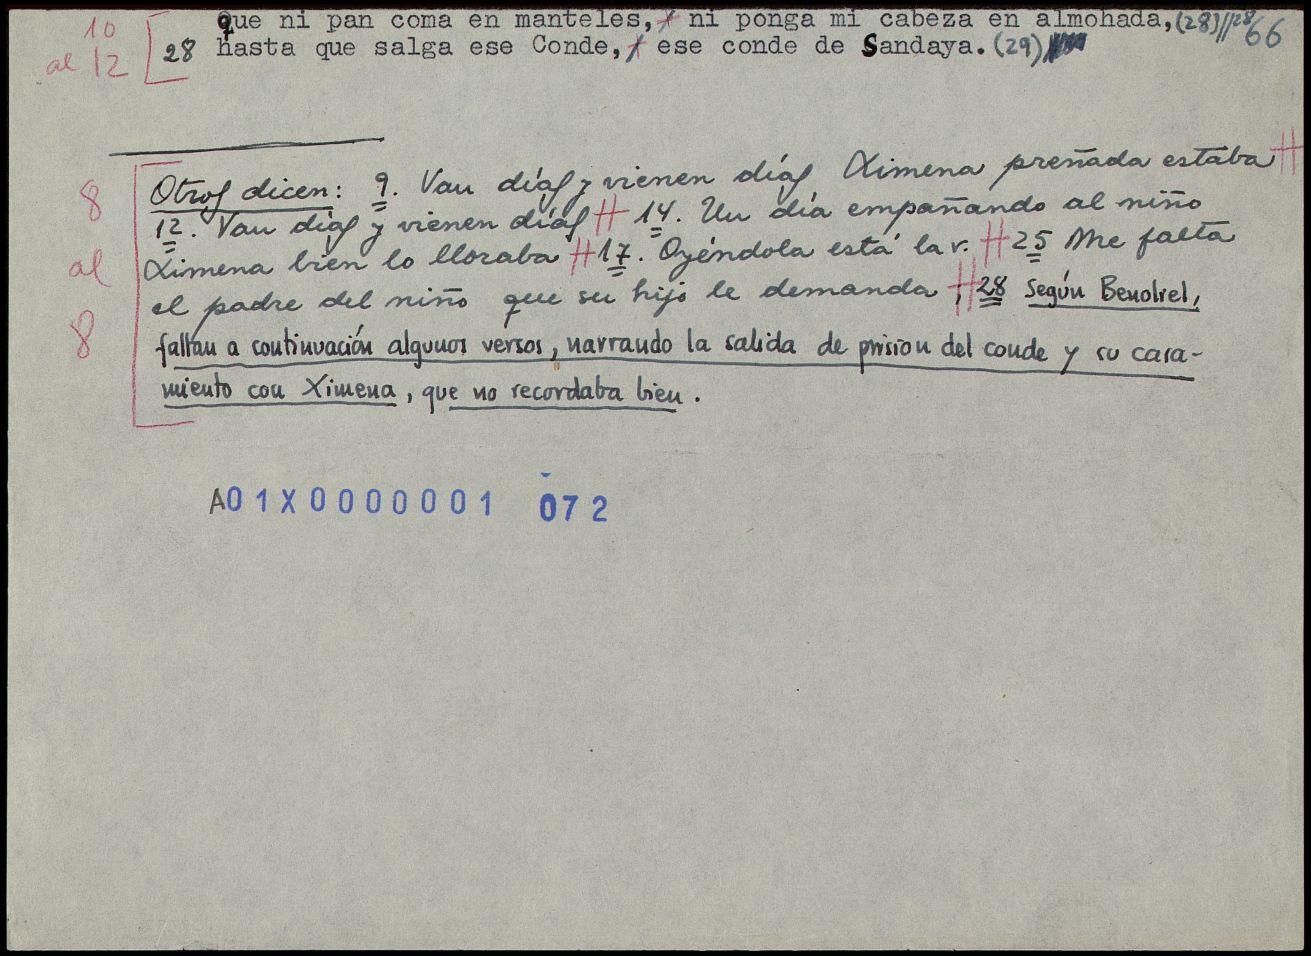 10 que ni pan coma en manteles, / ni ponga mi cabeza en almohada, (28)//28/66
al 12 [28 hasta que salga ese Conde, / ese conde de Sandaya. (29)
8 Otros dicen: 9. Van días y vienen días Ximena preñada estaba #
12. Van días y vienen días # 14. Un día empañando al niño
al Ximena bien lo lloraba # 17. Oyéndola está la r. # 25 Me falta
8 el padre del niño que su hijo le demanda, # 28 Según Benoliel,
faltan a continuación algunos versos, narrando la salida de prision del conde y su casa-
miento con Ximena, que no recordaba bien.
A01X0000001 072